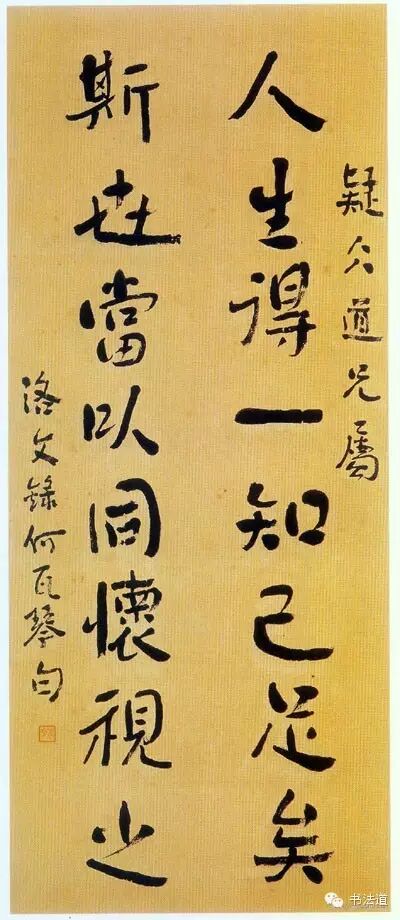 疑仌道兄屬
人生得一知己足矣
斯世當以同懷視之
洛文錄何瓦琴句
书法道